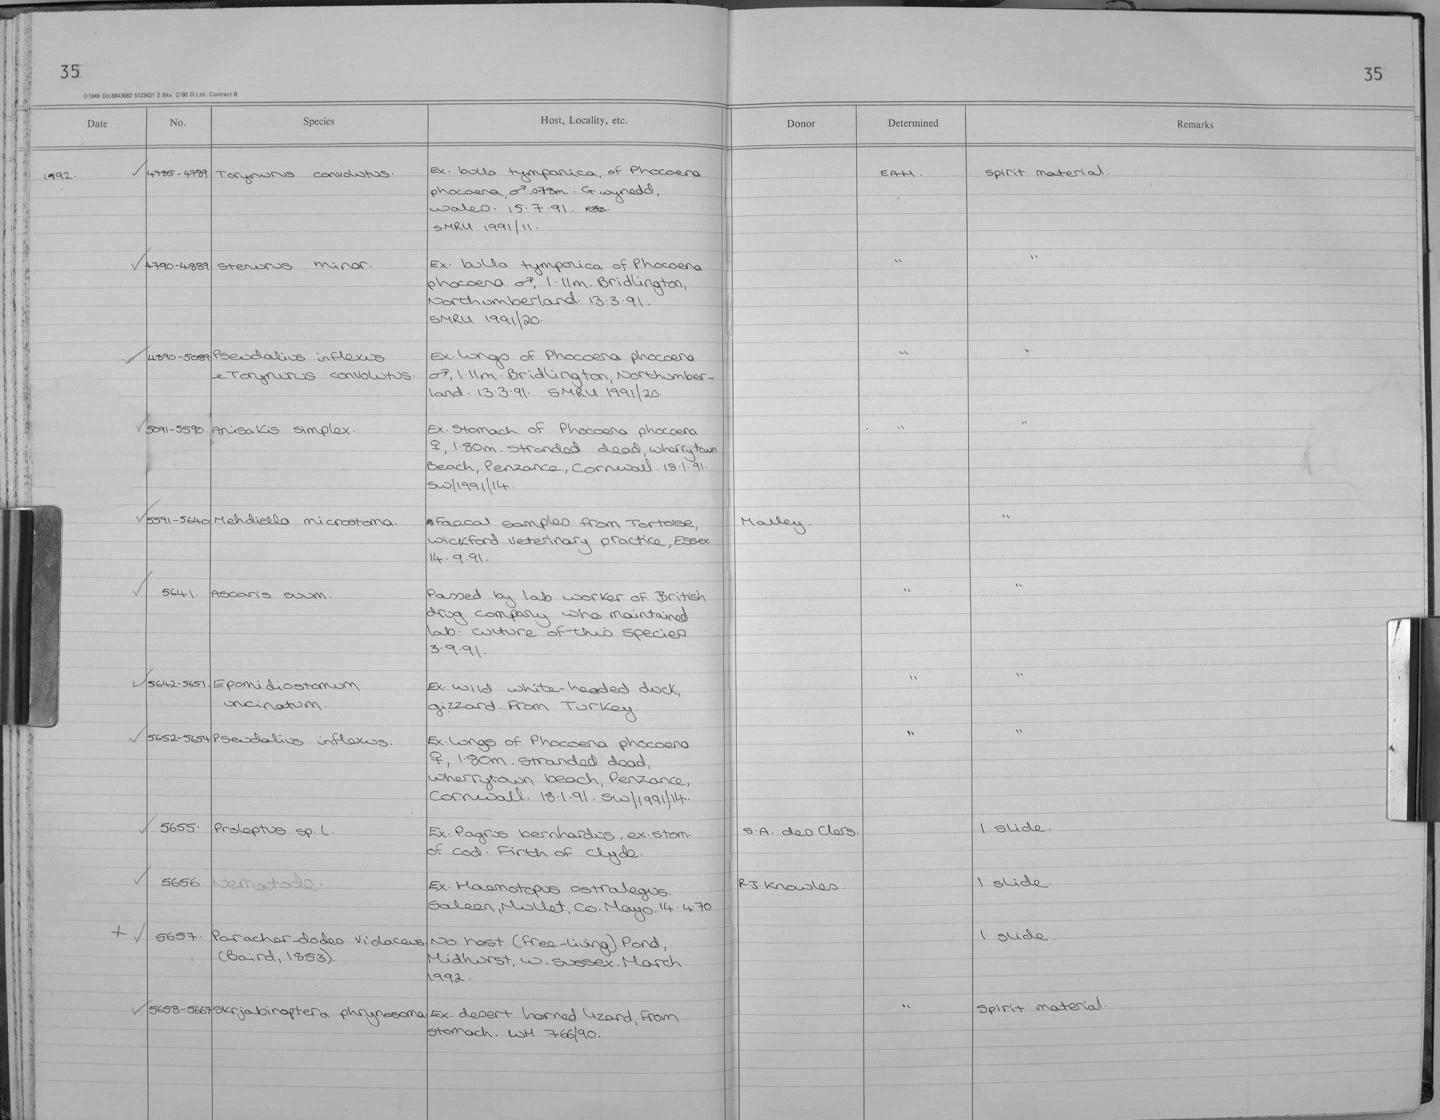 35
35
O1949 Dd.8843682 5123421 2 Bks. 2/86 D.Ltd. Contract 8
Date No. Species Host, Locality, etc. Donor Determined Remarks
1992. ✓ 4785-4789 Torynurus convolutus. Ex. bulla tympanica, of Phocoena EAH. spirit material.
phocoena, ♂.078m. Gwynedd,
Wales. 15.7.91.
SMRU 1991/11.
✓ 4790-4889 Stenurus minor. Ex. bulla tympanica of Phocoena " "
phocoena ♂, 1.11m. Bridlington,
Northumberland. 13.3.91.
SMRU 1991/20.
✓ 4890-5089 Pseudalius inflexus Ex. lungs of Phocoena phocoena " "
Torynurus convolutus. ♂, 1.11m. Bridlington, Northumber-
land. 13.3.91. SMRU 1991/20.
✓ 5091-5590. Anisakis simplex. Ex. Stomach of Phocoena phocoena " "
♀, 1.80m. Stranded dead, Wherrytown
Beach, Penzance, Cornwall. 18.1.91.
SW/1991/14.
✓ 5591-5640 Mehdiella microstoma. Faecal samples from Tortoise, Malley. "
Wickford veterinary practice, Essex
14.9.91.
✓ 5641. Ascaris suum. Passed by lab worker of British " "
drug company who maintained
lab. culture of this species
3.9.91.
✓ 5642-5651 Epomidiostomum Ex. wild white-headed duck, " "
uncinatum. gizzard. From Turkey.
✓ 5652-5654 Pseudalius inflexus. Ex. lungs of Phocoena phocoena " "
♀, 1.80m. stranded dead,
Wherrytown beach, Penzance,
Cornwall. 18.1.91. SW/1991/14.
✓ 5655. Proleptus sp. L. Ex. Pagrus bernhardus, ex. stom. S.A. des Clers. 1 slide.
of cod. Firth of Clyde.
✓ 5656 Nematode. Ex. Haemotopus ostralegus. R.J. Knowles. 1 slide.
Saleen, Mullet, Co. Mayo. 14.4.70
+ ✓ 5657. Paracher-dodes violaceus No host (free-living) Pond, 1 slide.
(Baird, 1853). Midhurst, W. Sussex. March
1992.
✓ 5658-5667 Skrjabinoptera phrynosoma Ex. desert horned lizard, from " Spirit material.
stomach. WH 766/90.